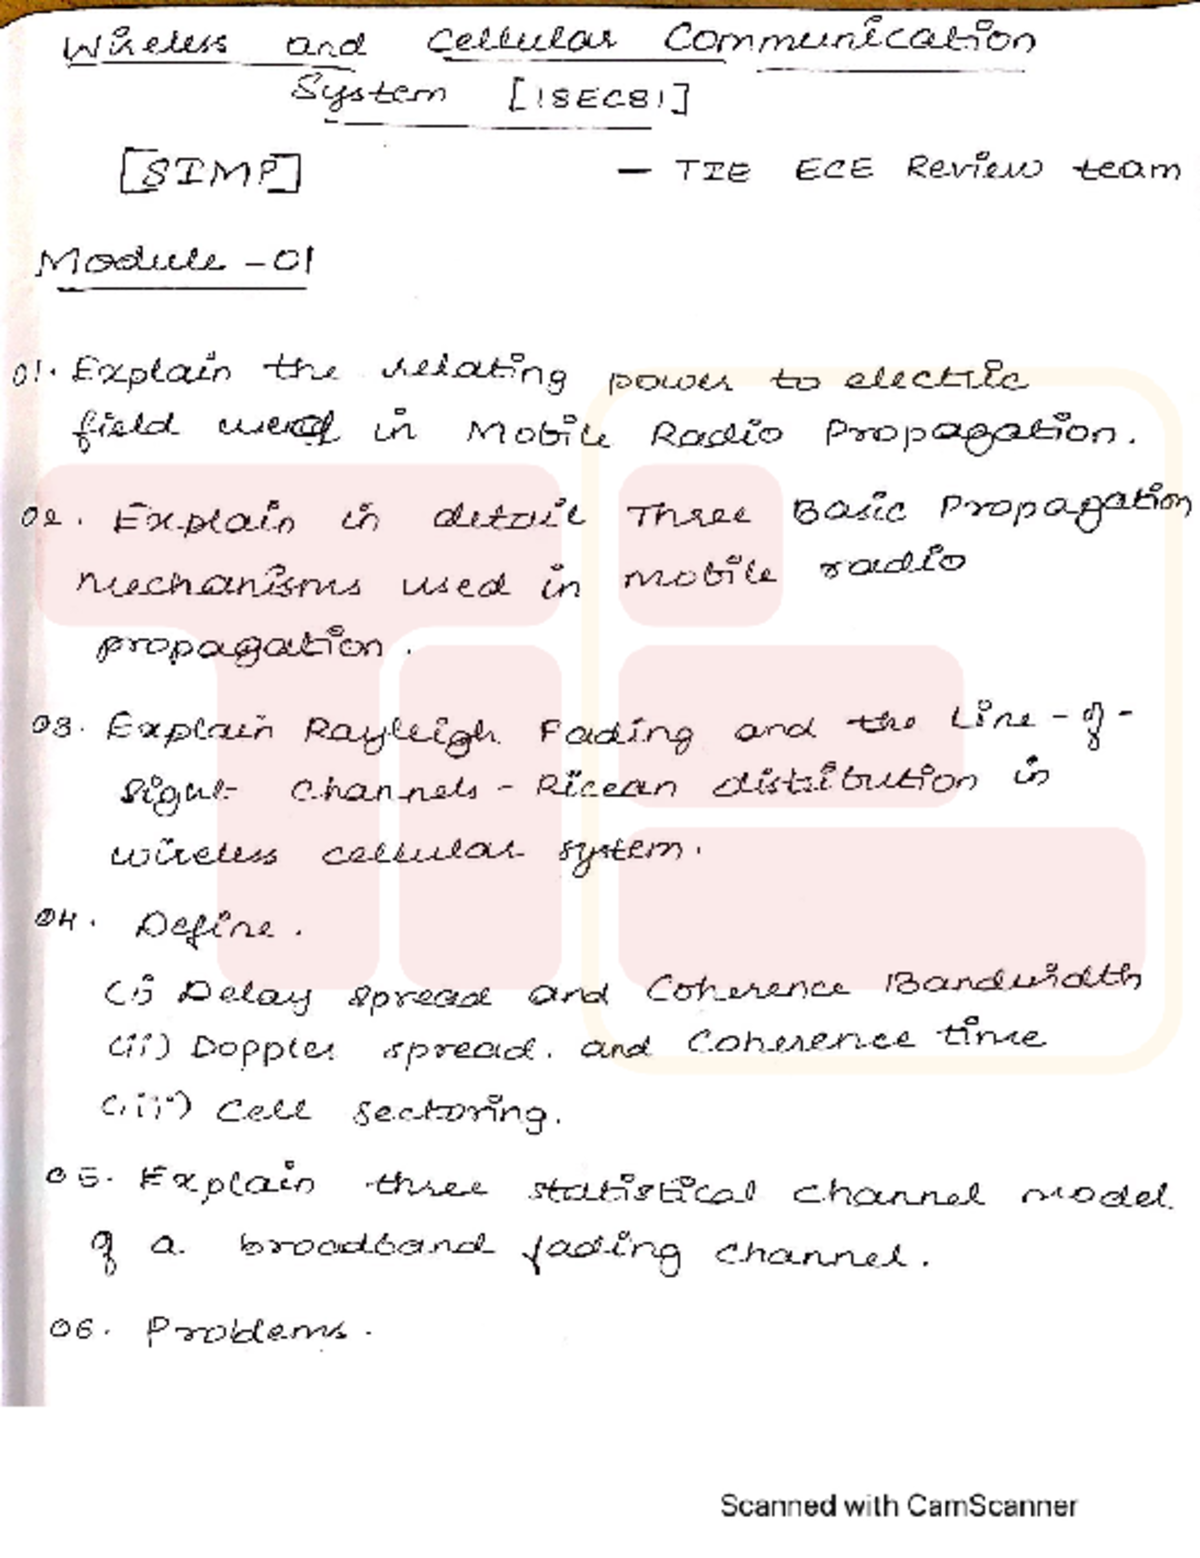 Wireless and Cellular Communication
System [18EC81]
[SIMP] - TIE ECE Review team
Module-01
01. Explain the relating power to electric
field used in Mobile Radio Propagation.
02. Explain in detail Three Basic Propagation
Mechanisms used in mobile radio
propagation.
03. Explain Rayleigh Fading and the Line-of-
Sight channels - Ricean distribution in
wireless cellular system.
04. Define.
(i) Delay spread and Coherence Bandwidth
(ii) Doppler spread. and Coherence time
(iii) Cell sectoring.
05. Explain three statistical channel model
of a broadband fading channel.
06. Problems.
Scanned with CamScanner